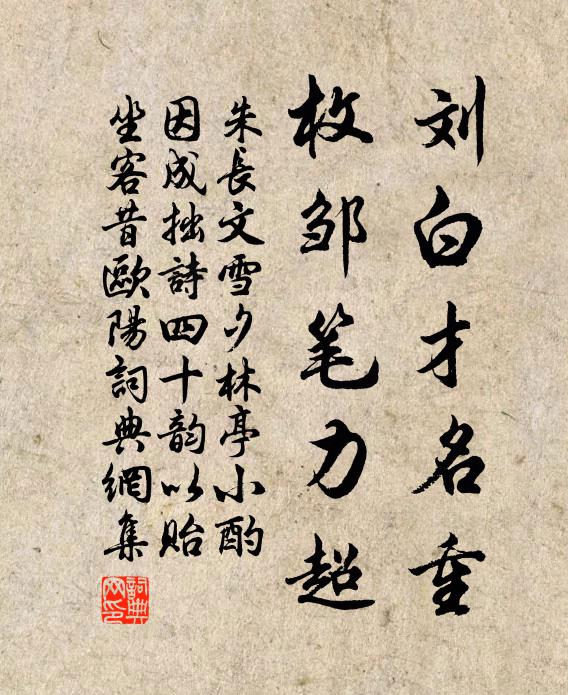 刘白才名重
枚邹笔力超
朱長文雪夕林亭小酌
因成拙詩四十韵以贻
坐客昔歐陽詞典網集